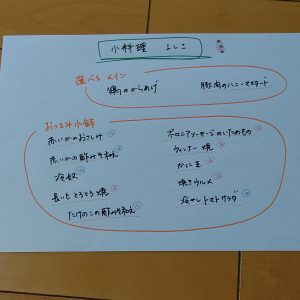 小料理 よしこ
選べる メイン
鶏のからあげ
豚肉のハニーマスタード
おつまみ小鉢
赤いかのおさしみ
赤いかの酢みそ和え
冷奴
長いも とろとろ焼
たけのこの酢みそ和え
ポロニアソーセージのいためもの
ウィンナー 焼
かに玉
焼きウルメ
冷やしトマトサラダ